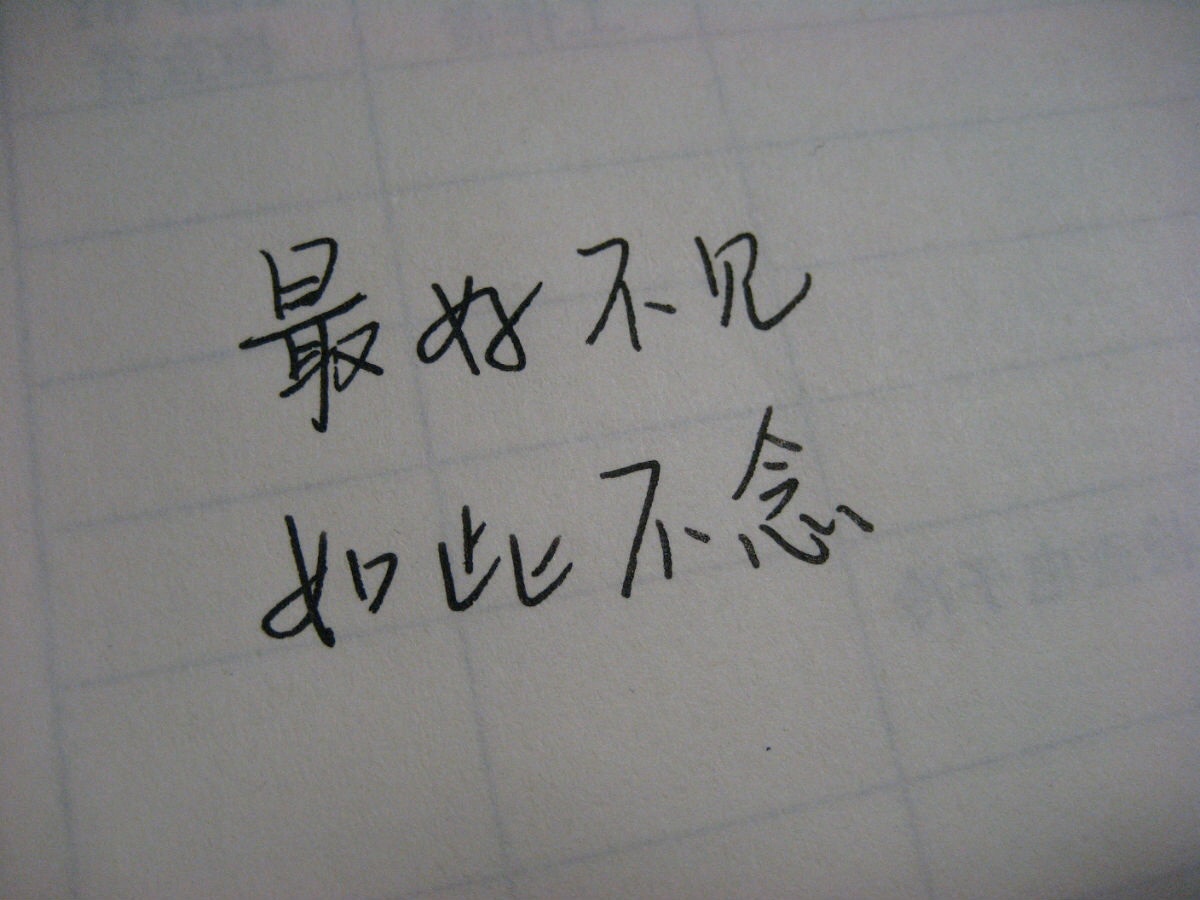 最好不见
如此不念